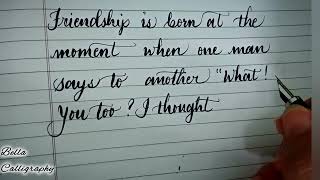 Friendship is born at the
moment when one man
says to another "What!
You too? I thought
Bella
Calligraphy